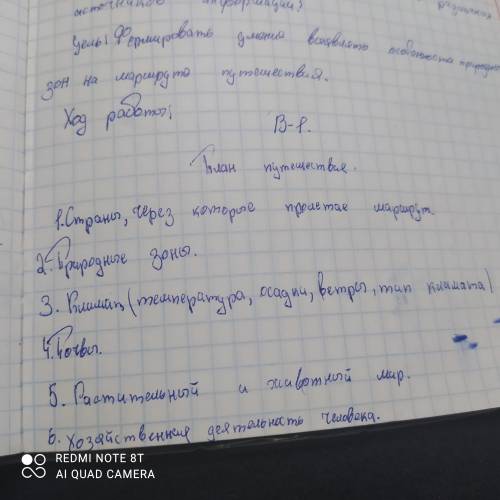 источников информации;
различных
Цель: Формировать умения выявлять особенности природных
зон на маршруте путешествия.
Ход работы;
В-1.
План путешествия.
1. Страны, через которые пролетае маршрут.
2. Природные зоны.
3. Климат (температура, осадки, ветры, тип климата)
4. Почвы.
5. Растительный и животный мир.
6. Хозяйственная деятельность человека.
REDMI NOTE 8T
AI QUAD CAMERA